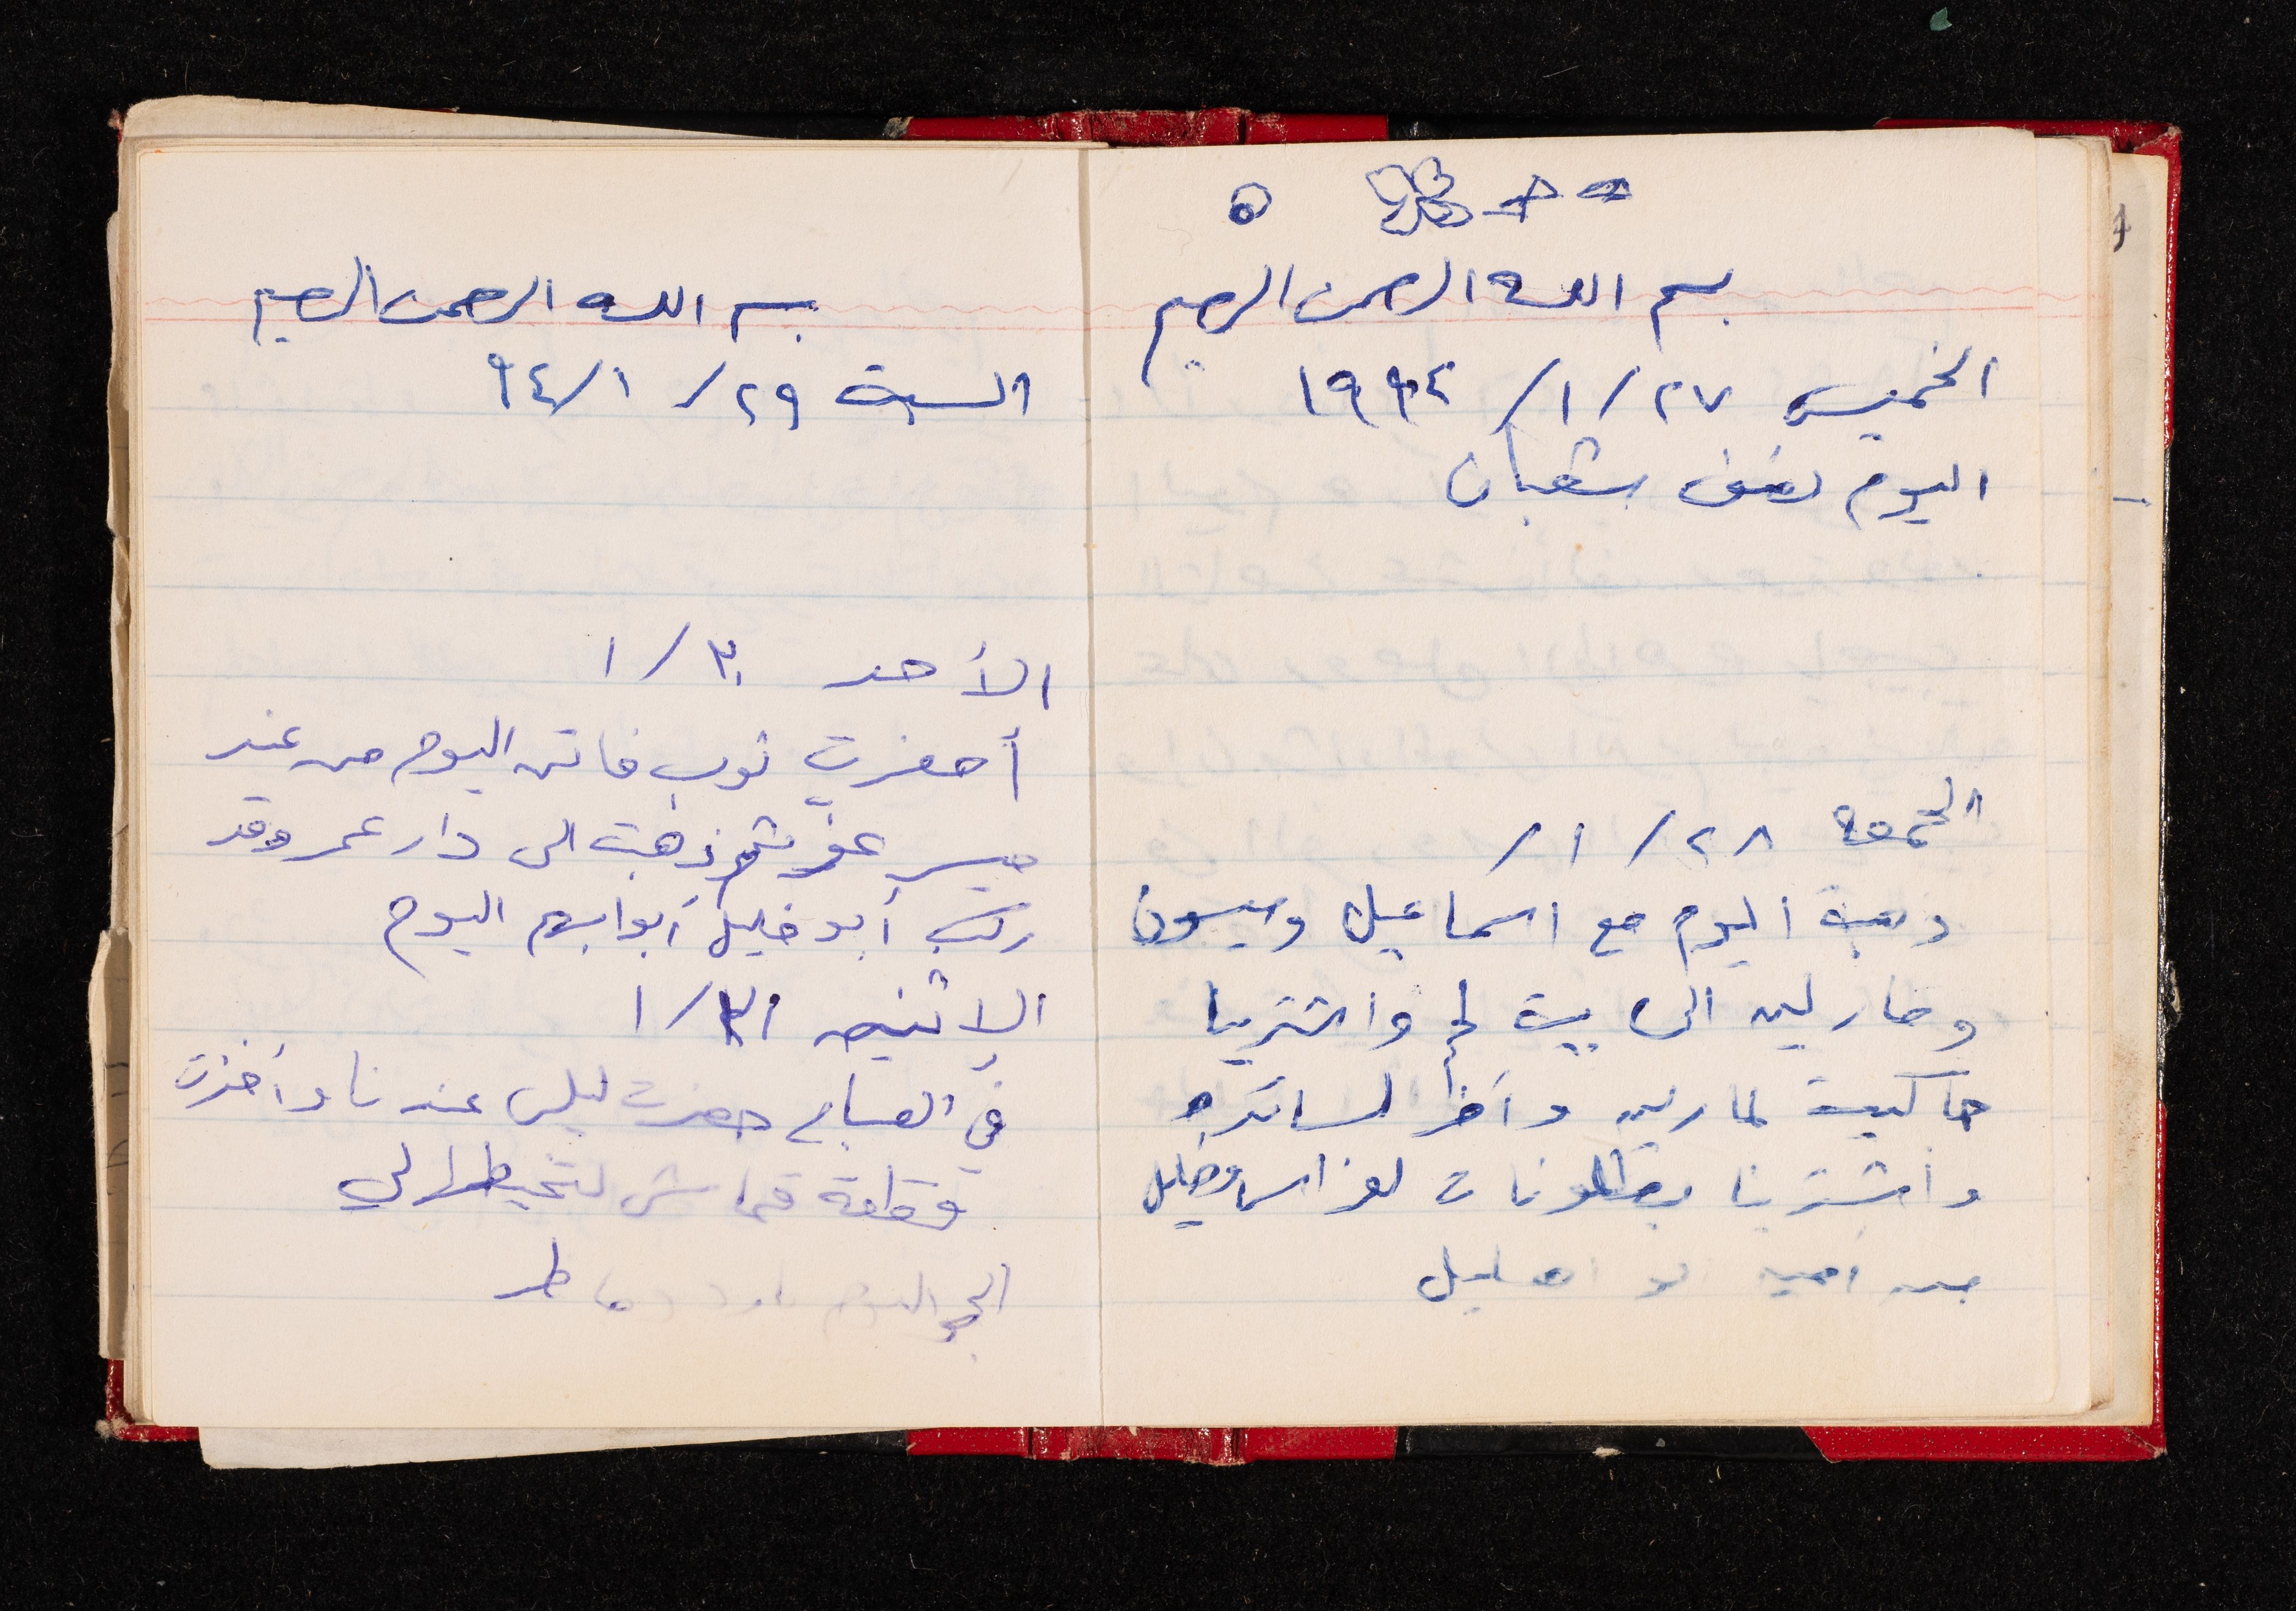 بسم الله الرحمن الرحيم
الخميس ٢٧/ ١/ ١٩٩٤
اليوم نصف شعبان
الجمعة ٢٨/ ١/
ذهبت اليوم مع اسماعيل وميسون
ومارلين الى بيت لحم واشترينا
جاكيت لمارلين وآخر لساندره
واشترينا بنطلونات لعز اسماعيل
السبت ٢٩/ ٩٤/١
بسم الله الرحمن الرحيم
الأحد ٣٠/ ١
أحضرت ثوب فاتن اليوم من عند
عز ثم ذهبت الى دار عمر وقد
ركب أبو خليل أبوابهم اليوم
الإثنين ٣١/ ١
في الصباح حضرت ليلى عندنا وأخذت
قطعة قماش لتخيطها لي
الجو اليوم بارد وماطر